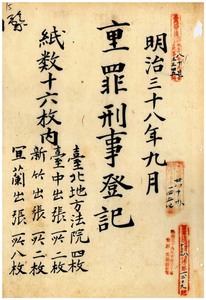 明治三十八年九月
重罪刑事登記
紙数十六枚内
臺北地方法院四枚
臺中出張所二枚
新竹出張所二枚
宜蘭出張所八枚